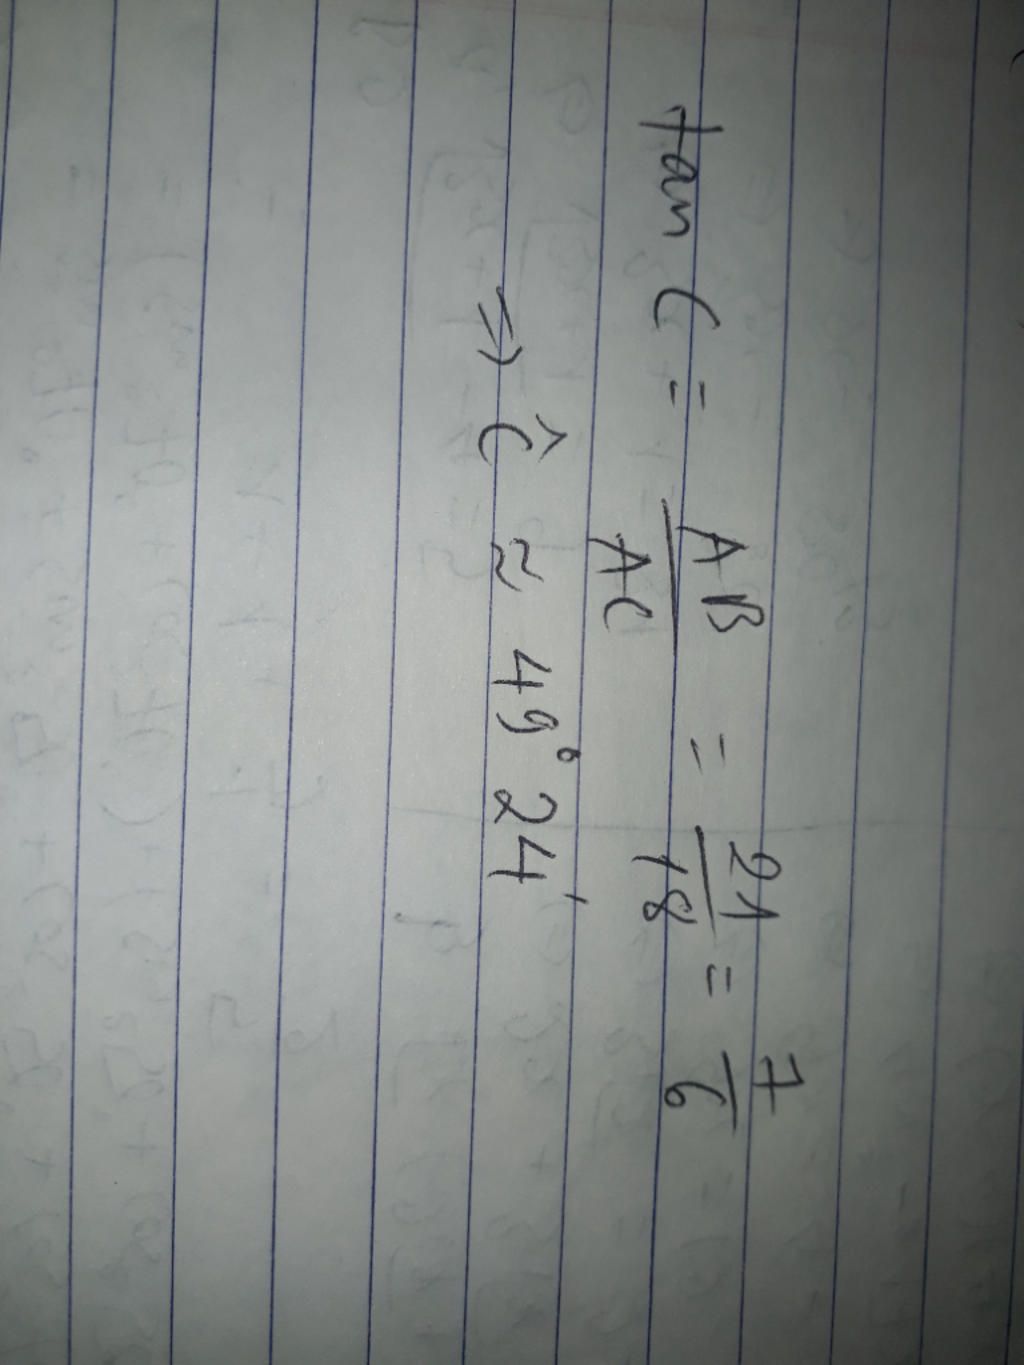 tan C = AB/AC = 21/18 = 7/6
⇒ Ĉ ≈ 49° 24'